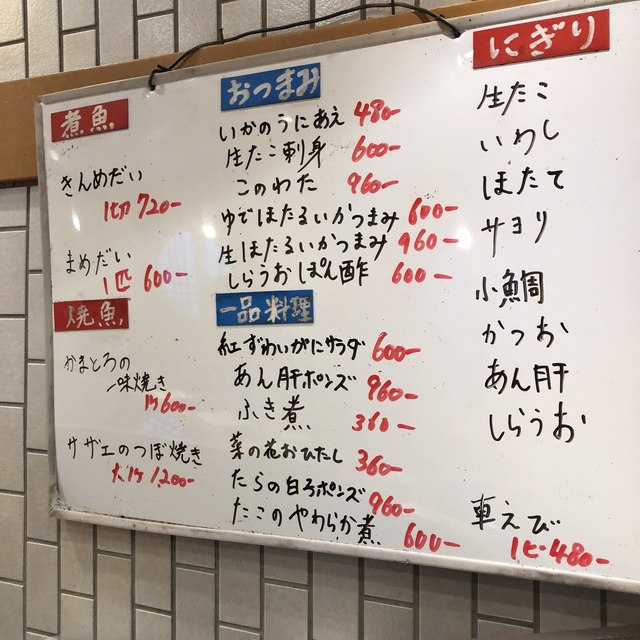 煮魚
きんめだい
1切 720-
まめだい
1匹 600-
焼魚
かまとろの
一味焼き
1ケ600-
サザエのつぼ焼き
大1ケ 1,200-
おつまみ
いかのうにあえ 480-
生たこ刺身 600-
このわた 960-
ゆでほたるいかつまみ 600-
生ほたるいかつまみ 960-
しらうおぽん酢 600-
一品料理
紅ずわいがにサラダ 600-
あん肝ポンズ 960-
ふき煮 360-
菜の花おひたし 360-
たらの白子ポンズ 960-
たこのやわらか煮 600-
にぎり
生たこ
いわし
ほたて
サヨリ
小鯛
かつお
あん肝
しらうお
車えび
1ヒ-480-